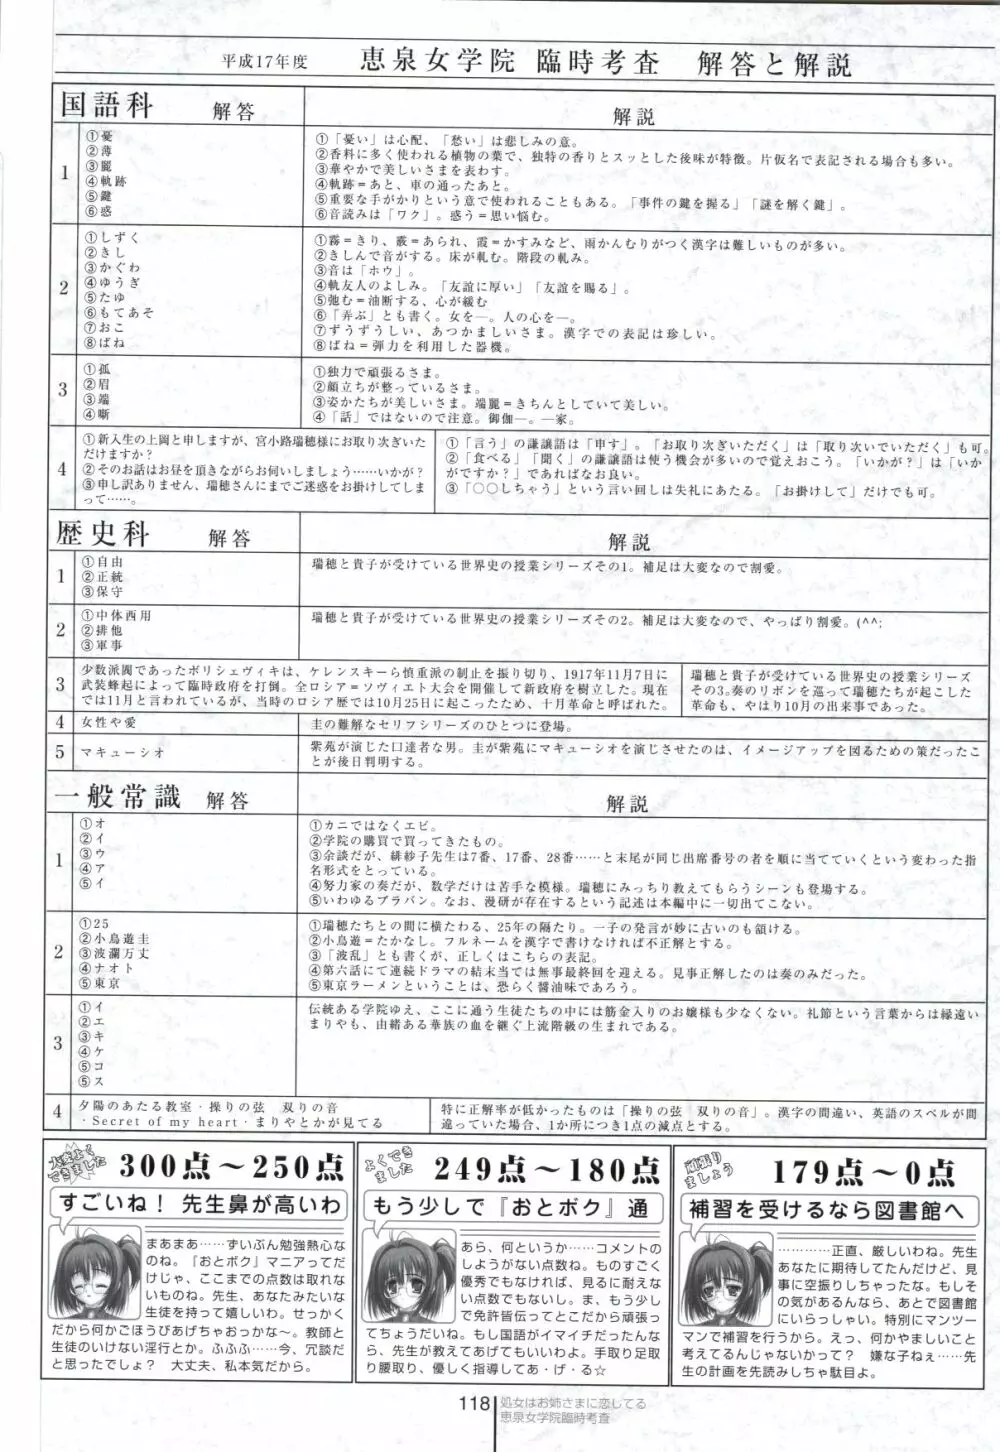 平成17年度　恵泉女学院 臨時考査　解答と解説
国語科　解答
解説
1
①憂
②薄
③麗
④軌跡
⑤鍵
⑥惑
①「憂い」は心配、「愁い」は悲しみの意。
②香料に多く使われる植物の葉で、独特の香りとスッとした後味が特徴。片仮名で表記される場合も多い。
③華やかで美しいさまを表わす。
④軌跡＝あと、車の通ったあと。
⑤重要な手がかりという意で使われることもある。「事件の鍵を握る」「謎を解く鍵」。
⑥音読みは「ワク」。惑う＝思い悩む。
2
①しずく
②きし
③かぐわ
④ゆうぎ
⑤たゆ
⑥もてあそ
⑦おこ
⑧ばね
①霧＝きり、霰＝あられ、霞＝かすみなど、雨かんむりがつく漢字は難しいものが多い。
②きしんで音がする。床が軋む。階段の軋み。
③音は「ホウ」。
④軌友人のよしみ。「友誼に厚い」「友誼を賜る」。
⑤弛む＝油断する、心が緩む
⑥「弄ぶ」とも書く。女を―。人の心を―。
⑦ずうずうしい、あつかましいさま。漢字での表記は珍しい。
⑧ばね＝弾力を利用した器機。
3
①孤
②眉
③端
④噺
①独力で頑張るさま。
②顔立ちが整っているさま。
③姿かたちが美しいさま。端麗＝きちんとしていて美しい。
④「話」ではないので注意。御伽―。―家。
4
①新入生の上岡と申しますが、宮小路瑞穂様にお取り次ぎいた
だけますか？
②そのお話はお昼を頂きながらお伺いしましょう……いかが？
③申し訳ありません、瑞穂さんにまでご迷惑をお掛けしてしま
って……。
①「言う」の謙譲語は「申す」。「お取り次ぎいただく」は「取り次いでいただく」も可。
②「食べる」「聞く」の謙譲語は使う機会が多いので覚えおこう。「いかが？」は「いか
がですか？」であればなお良い。
③「○○しちゃう」という言い回しは失礼にあたる。「お掛けして」だけでも可。
歴史科　解答
解説
1
①自由
②正統
③保守
瑞穂と貴子が受けている世界史の授業シリーズその1。補足は大変なので割愛。
2
①中体西用
②排他
③軍事
瑞穂と貴子が受けている世界史の授業シリーズその2。補足は大変なので、やっぱり割愛。(^^;
3
少数派閥であったボリシェヴィキは、ケレンスキーら慎重派の制止を振り切り、1917年11月7日に
武装蜂起によって臨時政府を打倒。全ロシア＝ソヴィエト大会を開催して新政府を樹立した。現在
では11月と言われているが、当時のロシア歴では10月25日に起こったため、十月革命と呼ばれた。
瑞穂と貴子が受けている世界史の授業シリーズ
その3。奏のリボンを巡って瑞穂たちが起こした
革命も、やはり10月の出来事であった。
4
女性や愛
圭の難解なセリフシリーズのひとつに登場。
5
マキューシオ
紫苑が演じた口達者な男。圭が紫苑にマキューシオを演じさせたのは、イメージアップを図るための策だったこ
とが後日判明する。
一般常識　解答
解説
1
①オ
②イ
③ウ
④ア
⑤イ
①カニではなくエビ。
②学院の購買で買ってきたもの。
③余談だが、緋紗子先生は7番、17番、28番……と末尾が同じ出席番号の者を順に当てていくという変わった指
名形式をとっている。
④努力家の奏だが、数学だけは苦手な模様。瑞穂にみっちり教えてもらうシーンも登場する。
⑤いわゆるブラバン。なお、漫研が存在するという記述は本編中に一切出てこない。
2
①25
②小鳥遊圭
③波瀾万丈
④ナオト
⑤東京
①瑞穂たちとの間に横たわる、25年の隔たり。一子の発言が妙に古いのも頷ける。
②小鳥遊＝たかなし。フルネームを漢字で書けなければ不正解とする。
③「波乱」とも書くが、正しくはこちらの表記。
④第六話にて連続ドラマの結末当ては無事最終回を迎える。見事正解したのは奏のみだった。
⑤東京ラーメンということは、恐らく醤油味であろう。
3
①イ
②エ
③キ
④ケ
⑤コ
⑥ス
伝統ある学院ゆえ、ここに通う生徒たちの中には筋金入りのお嬢様も少なくない。礼節という言葉からは縁遠い
まりやも、由緒ある華族の血を継ぐ上流階級の生まれである。
4
夕陽のあたる教室・操りの弦　双りの音
・Secret of my heart・まりやとかが見てる
特に正解率が低かったものは「操りの弦　双りの音」。漢字の間違い、英語のスペルが間
違っていた場合、1か所につき1点の減点とする。
大変よく
できました
300点～250点
すごいね！ 先生鼻が高いわ
まあまあ……ずいぶん勉強熱心な
のね。『おとボク』マニアってだ
けじゃ、ここまでの点数は取れな
いものね。先生、あなたみたいな
生徒を持って嬉しいわ。せっかく
だから何かごほうびあげちゃおっかな～。教師と
生徒のいけない淫行とか。ふふふ……今、冗談だ
と思ったでしょ？　大丈夫、私本気だから。
よくでき
ました
249点～180点
もう少しで『おとボク』通
あら、何というか……コメントの
しようがない点数ね。ものすごく
優秀でもなければ、見るに耐えな
い点数でもないし。ま、もう少し
で免許皆伝ってとこだから頑張っ
てちょうだいね。もし国語がイマイチだったんな
ら、先生が教えてあげてもいいわよ。手取り足取
り腰取り、優しく指導してあ・げ・る☆
頑張り
ましょう
179点～0点
補習を受けるなら図書館へ
…………正直、厳しいわね。先生
あなたに期待してたんだけど、見
事に空振りしちゃったな。もしそ
の気があるんなら、あとで図書館
にいらっしゃい。特別にマンツー
マンで補習を行うから。えっ、何かやましいこと
考えてるんじゃないかって？　嫌な子ねぇ……先
生の計画を先読みしちゃ駄目よ。
118
処女はお姉さまに恋してる
恵泉女学院臨時考査